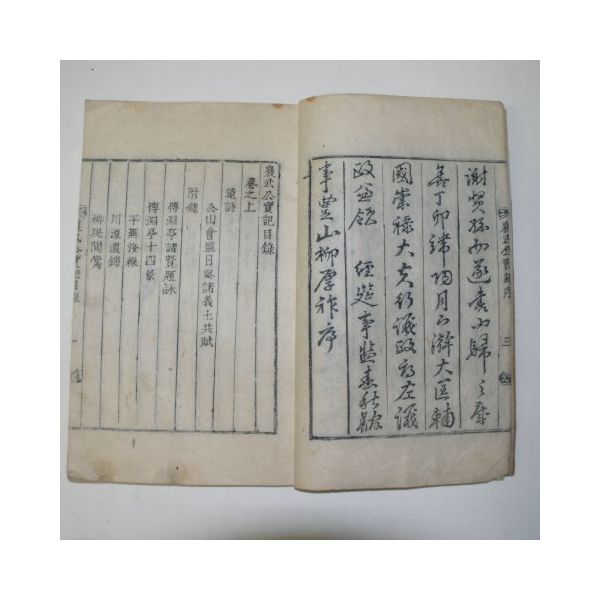 謝賢孫而遂書而歸之歲
舍丁卯端陽月下澣大匡輔
國崇祿大夫行議政府左議
政兼領 經筵事監春秋館
事豊山柳厚祚序
襄武公實記序
三
襄武公實記目錄
卷之上
遺詩
會盟日與諸義士共賦
附錄
傅淵亭諸賢題詠
傅淵亭十四景
平蕪淡綠
川源濃錦
柳堤聞鶯